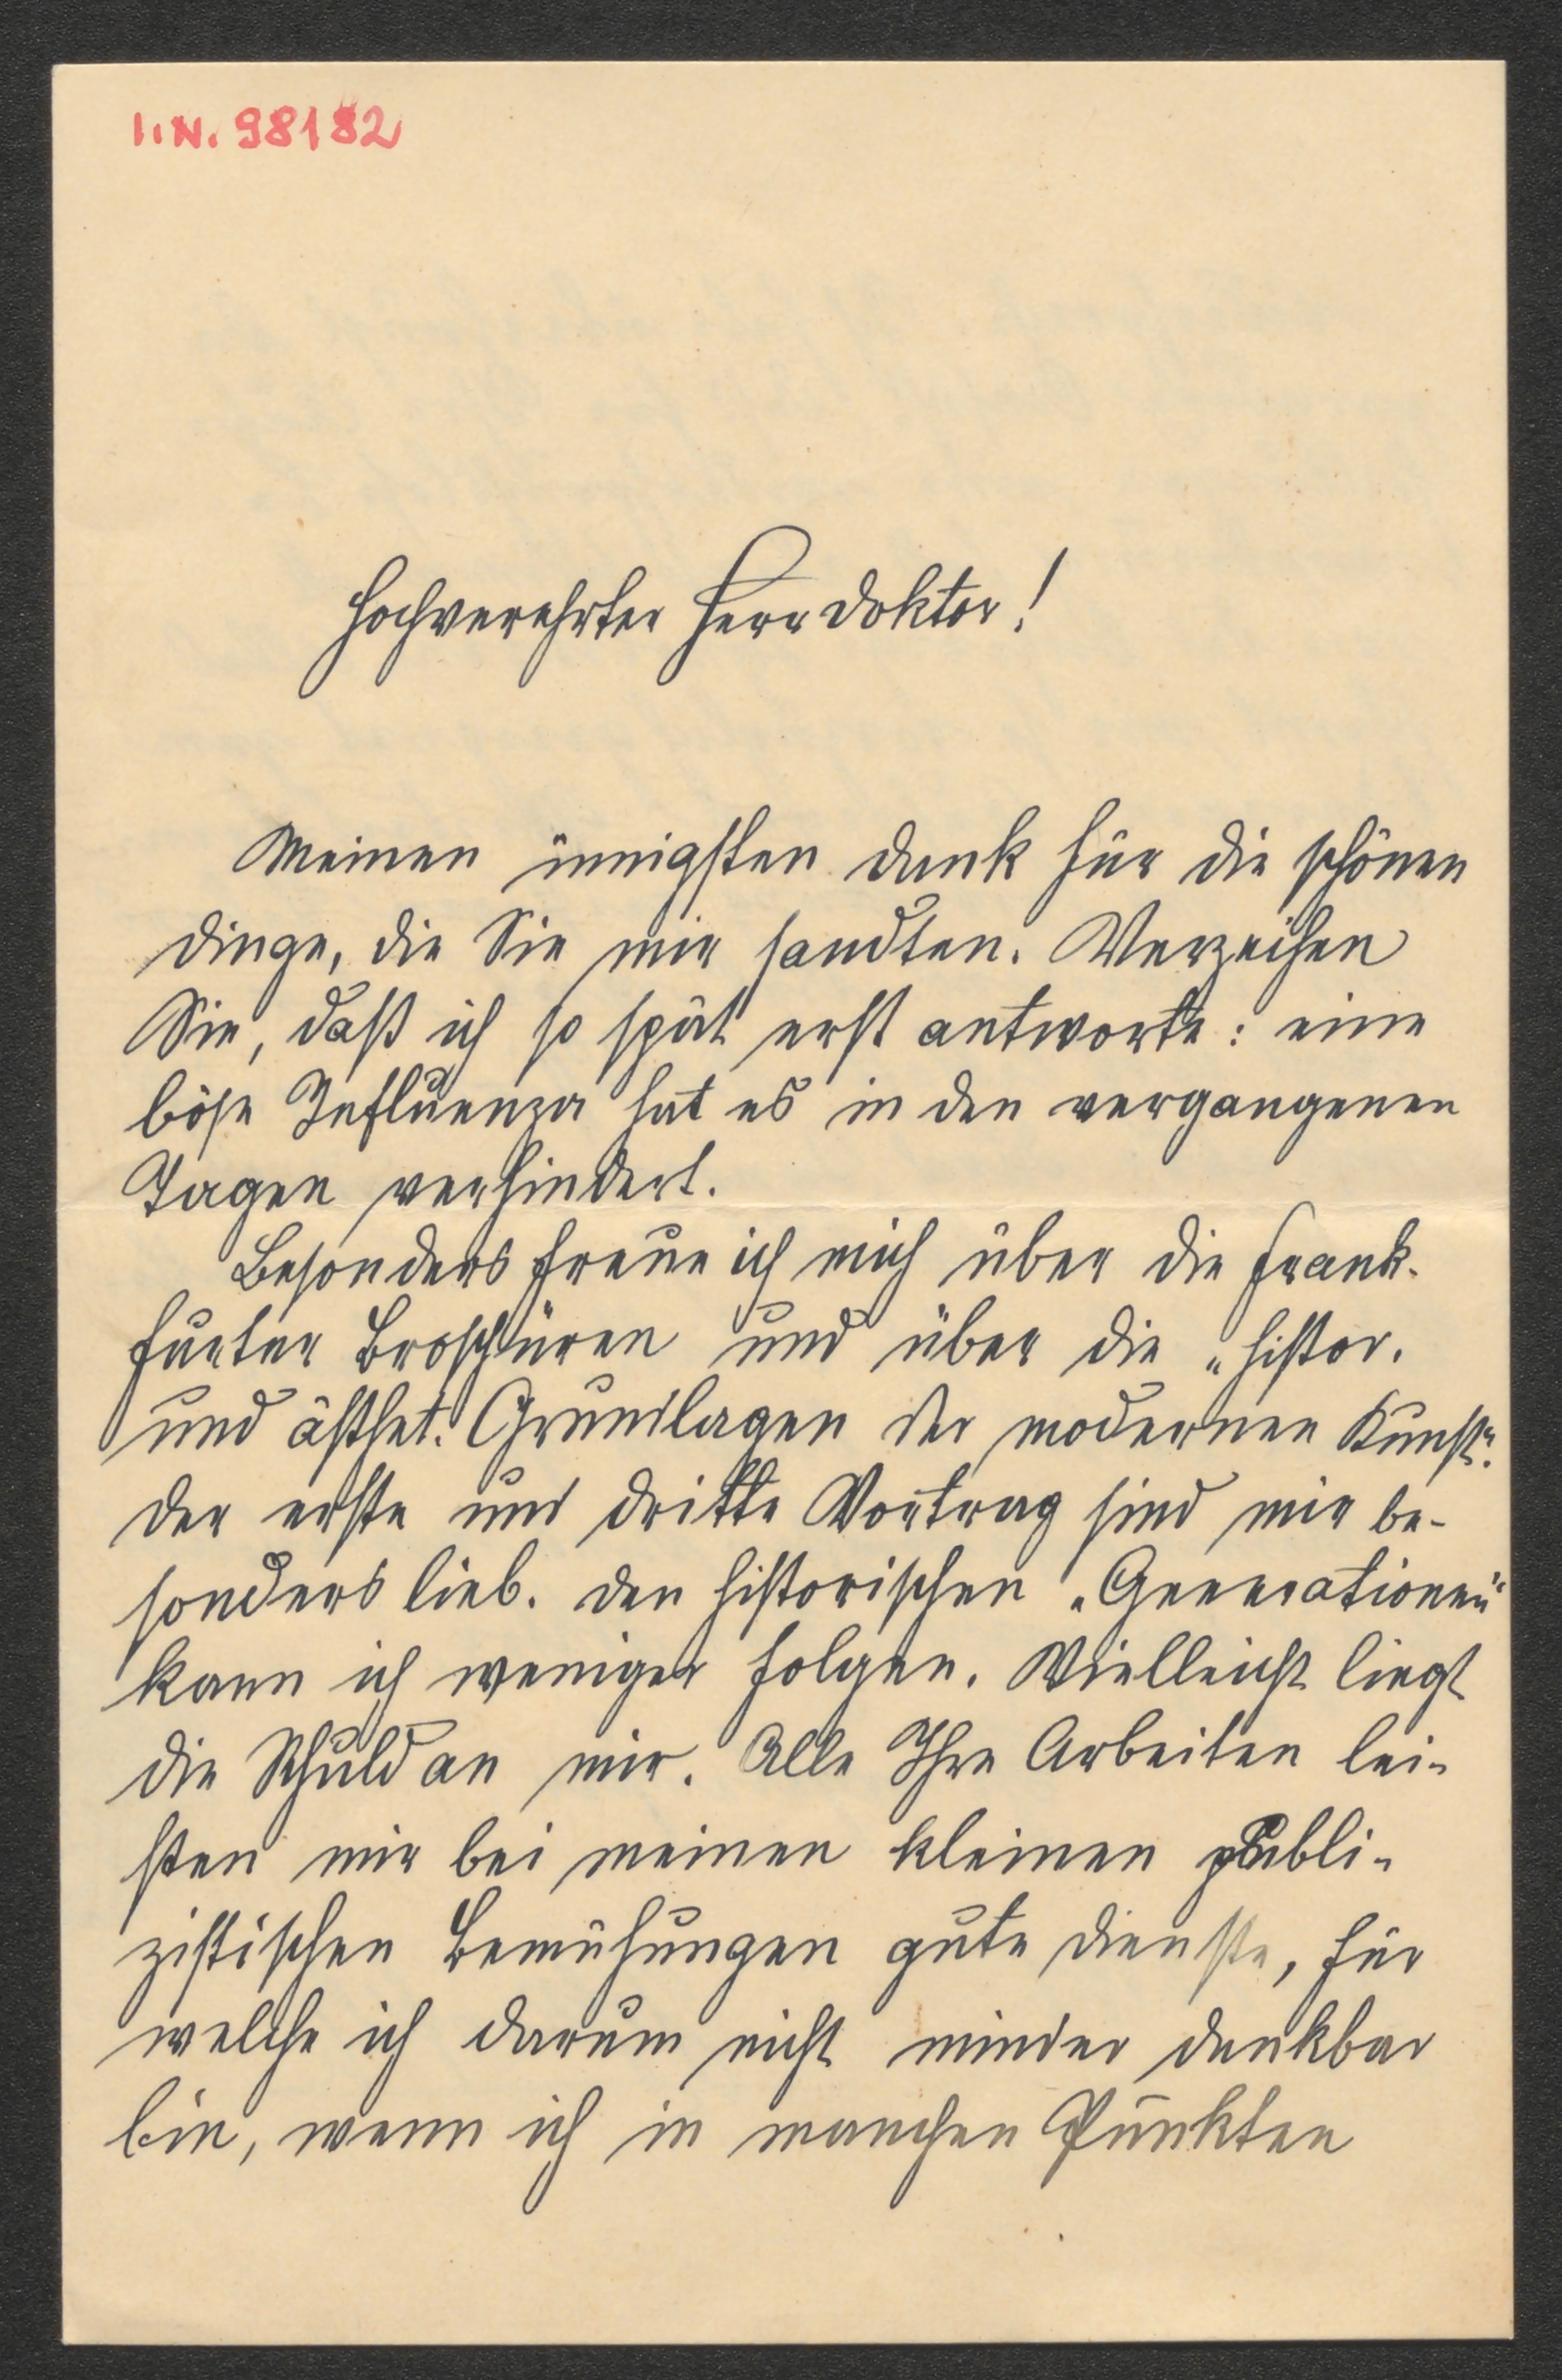 I.N. 98182
Hochverehrter Herr Doktor!
Meinen innigsten Dank für die schönen
Dinge, die Sie mir sandten. Verzeihen
Sie, daß ich so spät erst antworte: eine
böse Influenza hat es in den vergangenen
Tagen verhindert.
Besonders freue ich mich über die Frank-
furter Broschüren und über die „histor.
und ästhet. Grundlagen der modernen Kunst“.
Der erste und dritte Vortrag sind mir be-
sonders lieb. Den historischen „Generationen“
kann ich weniger folgen. Vielleicht liegt
die Schuld an mir. Alle Ihre Arbeiten lei-
sten mir bei meinen kleinen publi-
zistischen Bemühungen gute Dienste, für
welche ich darum nicht minder dankbar
bin, wenn ich in manchen Punkten